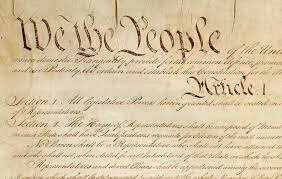 We the People of the Unite
insure domestic Tranquility, provide for the common defence, promote
and our Posterity, do ordain and establish this Constitution for the
Article. I.
Section. 1. All legislative Powers herein granted shall be vested in a
of Representatives.
Section. 2. The House of Representatives shall be composed of Mem
in each State shall have Qualifications requisite for Electors of the most
No Person shall be a Representative who shall not have attained
and who shall not, when elected, be an Inhabitant of that State in which he s
Representatives and direct Taxes shall be apportioned among the several